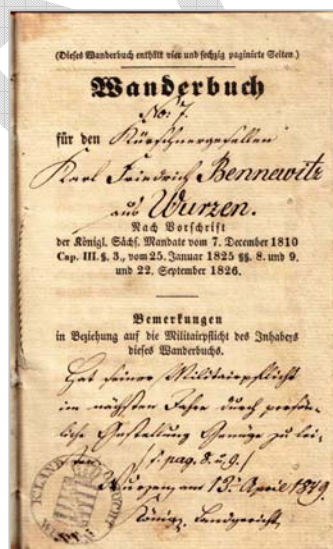 (Dieses Wanderbuch enthält vier und sechzig paginirte Seiten.)
Wanderbuch
No: 7.
für den Kürschnergesellen
Karl Friedrich Bennewitz
aus Wurzen.
Nach Vorschrift
der Königl. Sächs. Mandate vom 7. December 1810
Cap. III. §. 3., vom 25. Januar 1825 §§. 8. und 9.
und 22. September 1826.
Bemerkungen
in Beziehung auf die Militairpflicht des Inhabers
dieses Wanderbuchs.
Hat seiner Militairpflicht
im nächsten Jahre durch persön-
liche Gestellung Genüge zu lei-
sten /s. pag. 8. u. 9./
Wurzen, am 13. April 1849.
Königl. Landgericht.